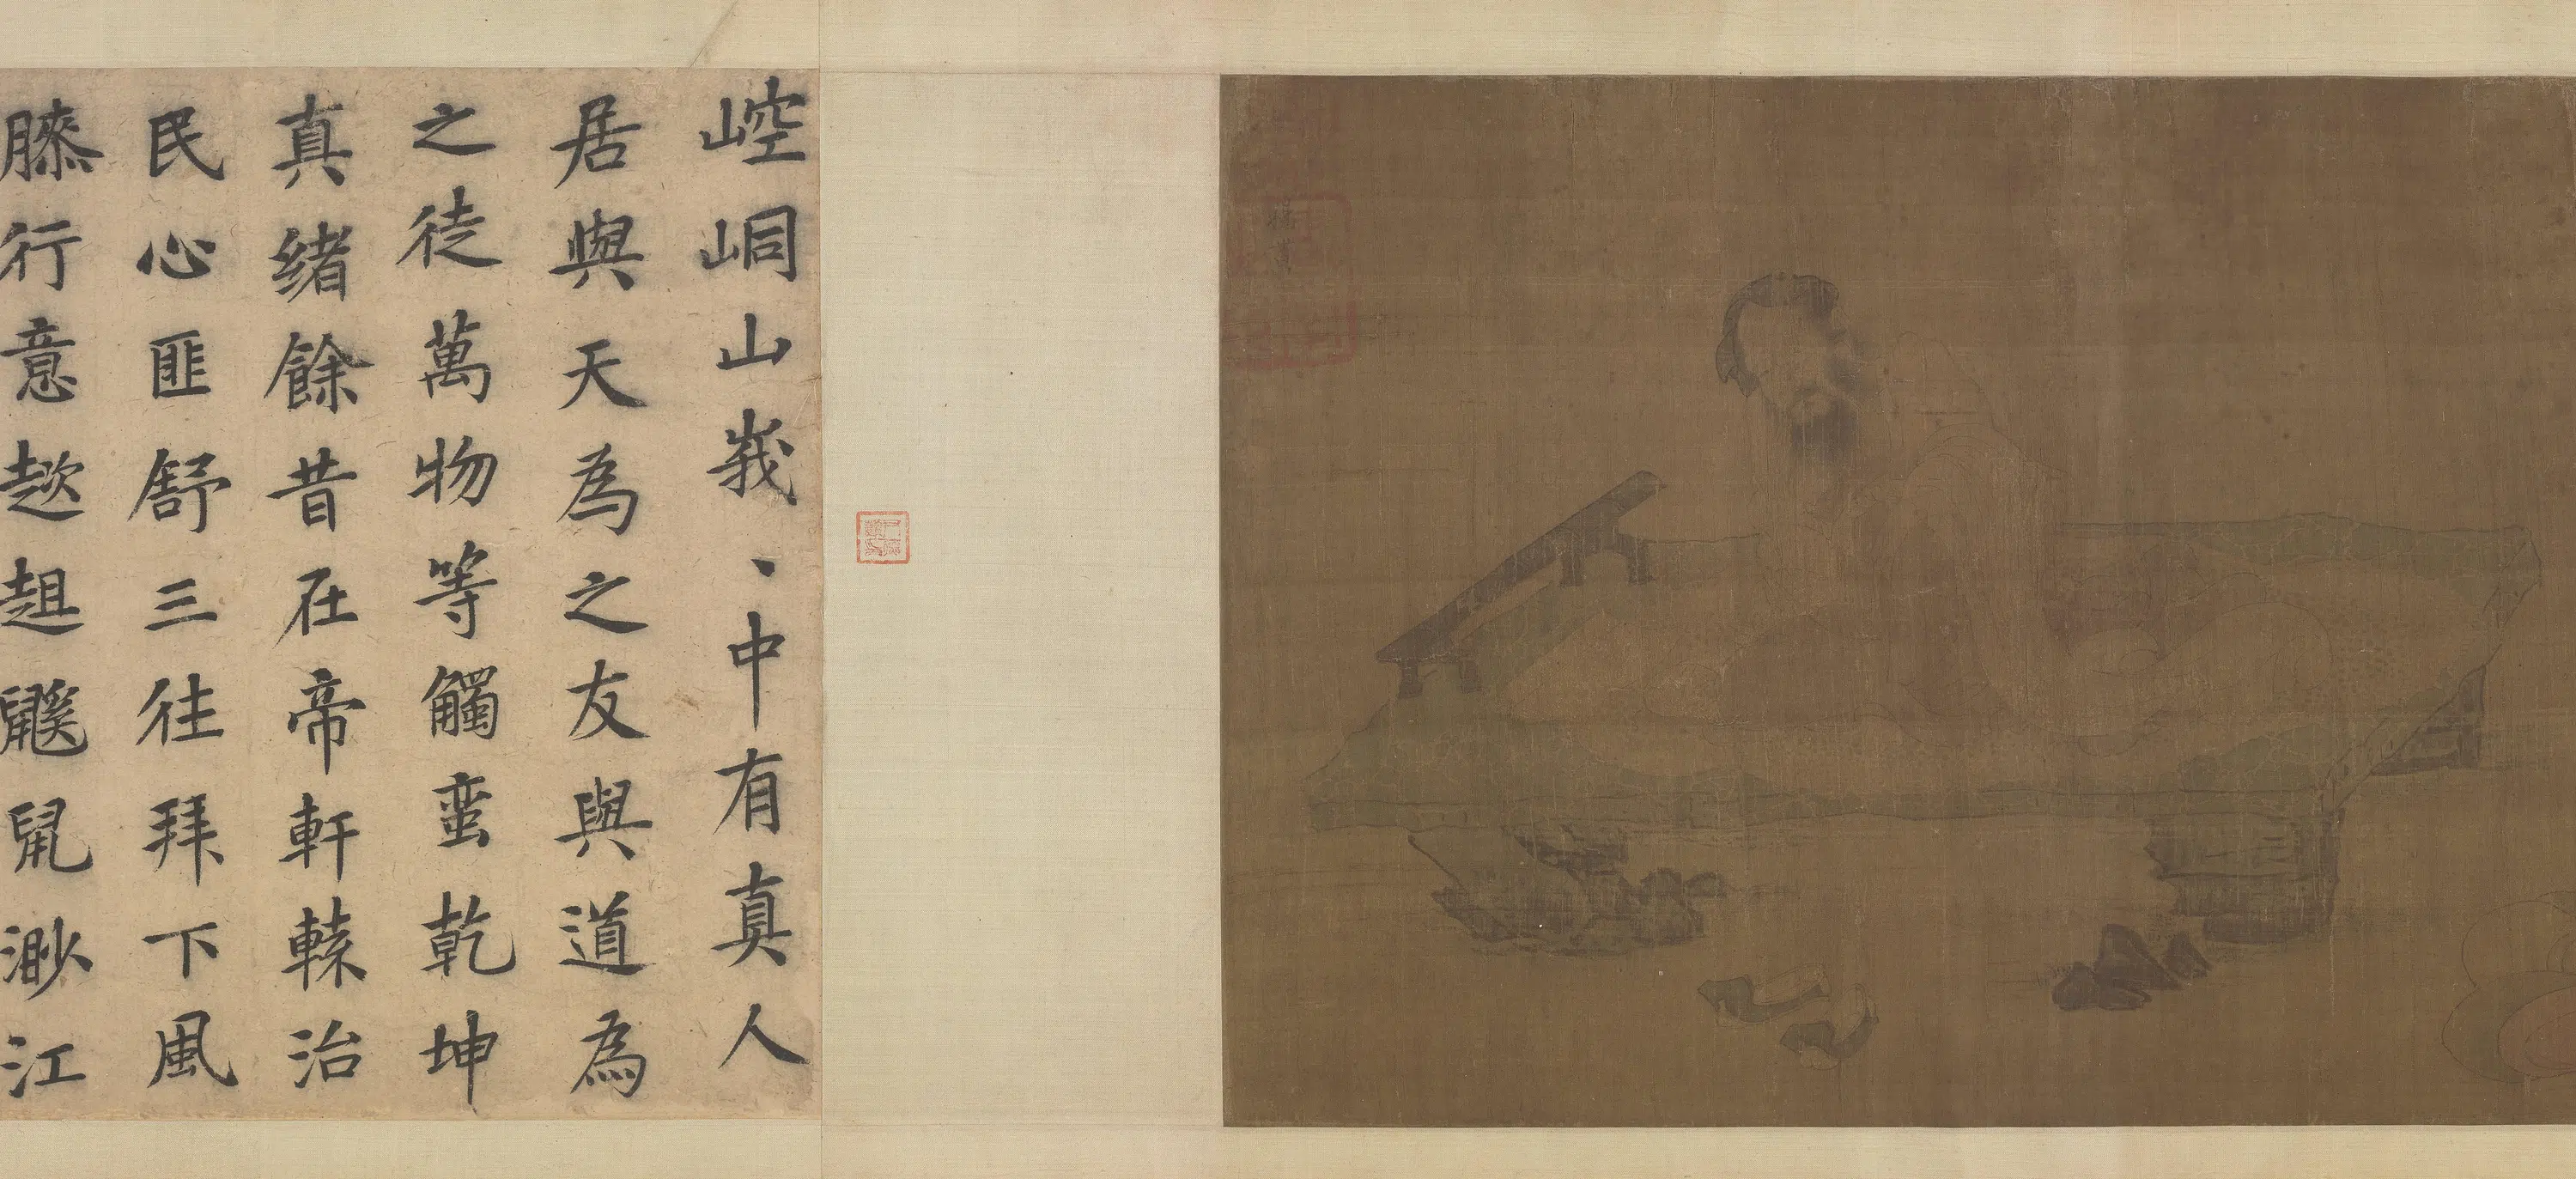 崆峒山峩、中有真人
居與天為之友與道為
之徒萬物等觸蛮乾坤
真緒餘昔在帝軒轅治
民心匪舒三往拜下風
膝行意趑趄鼷鼠渺江